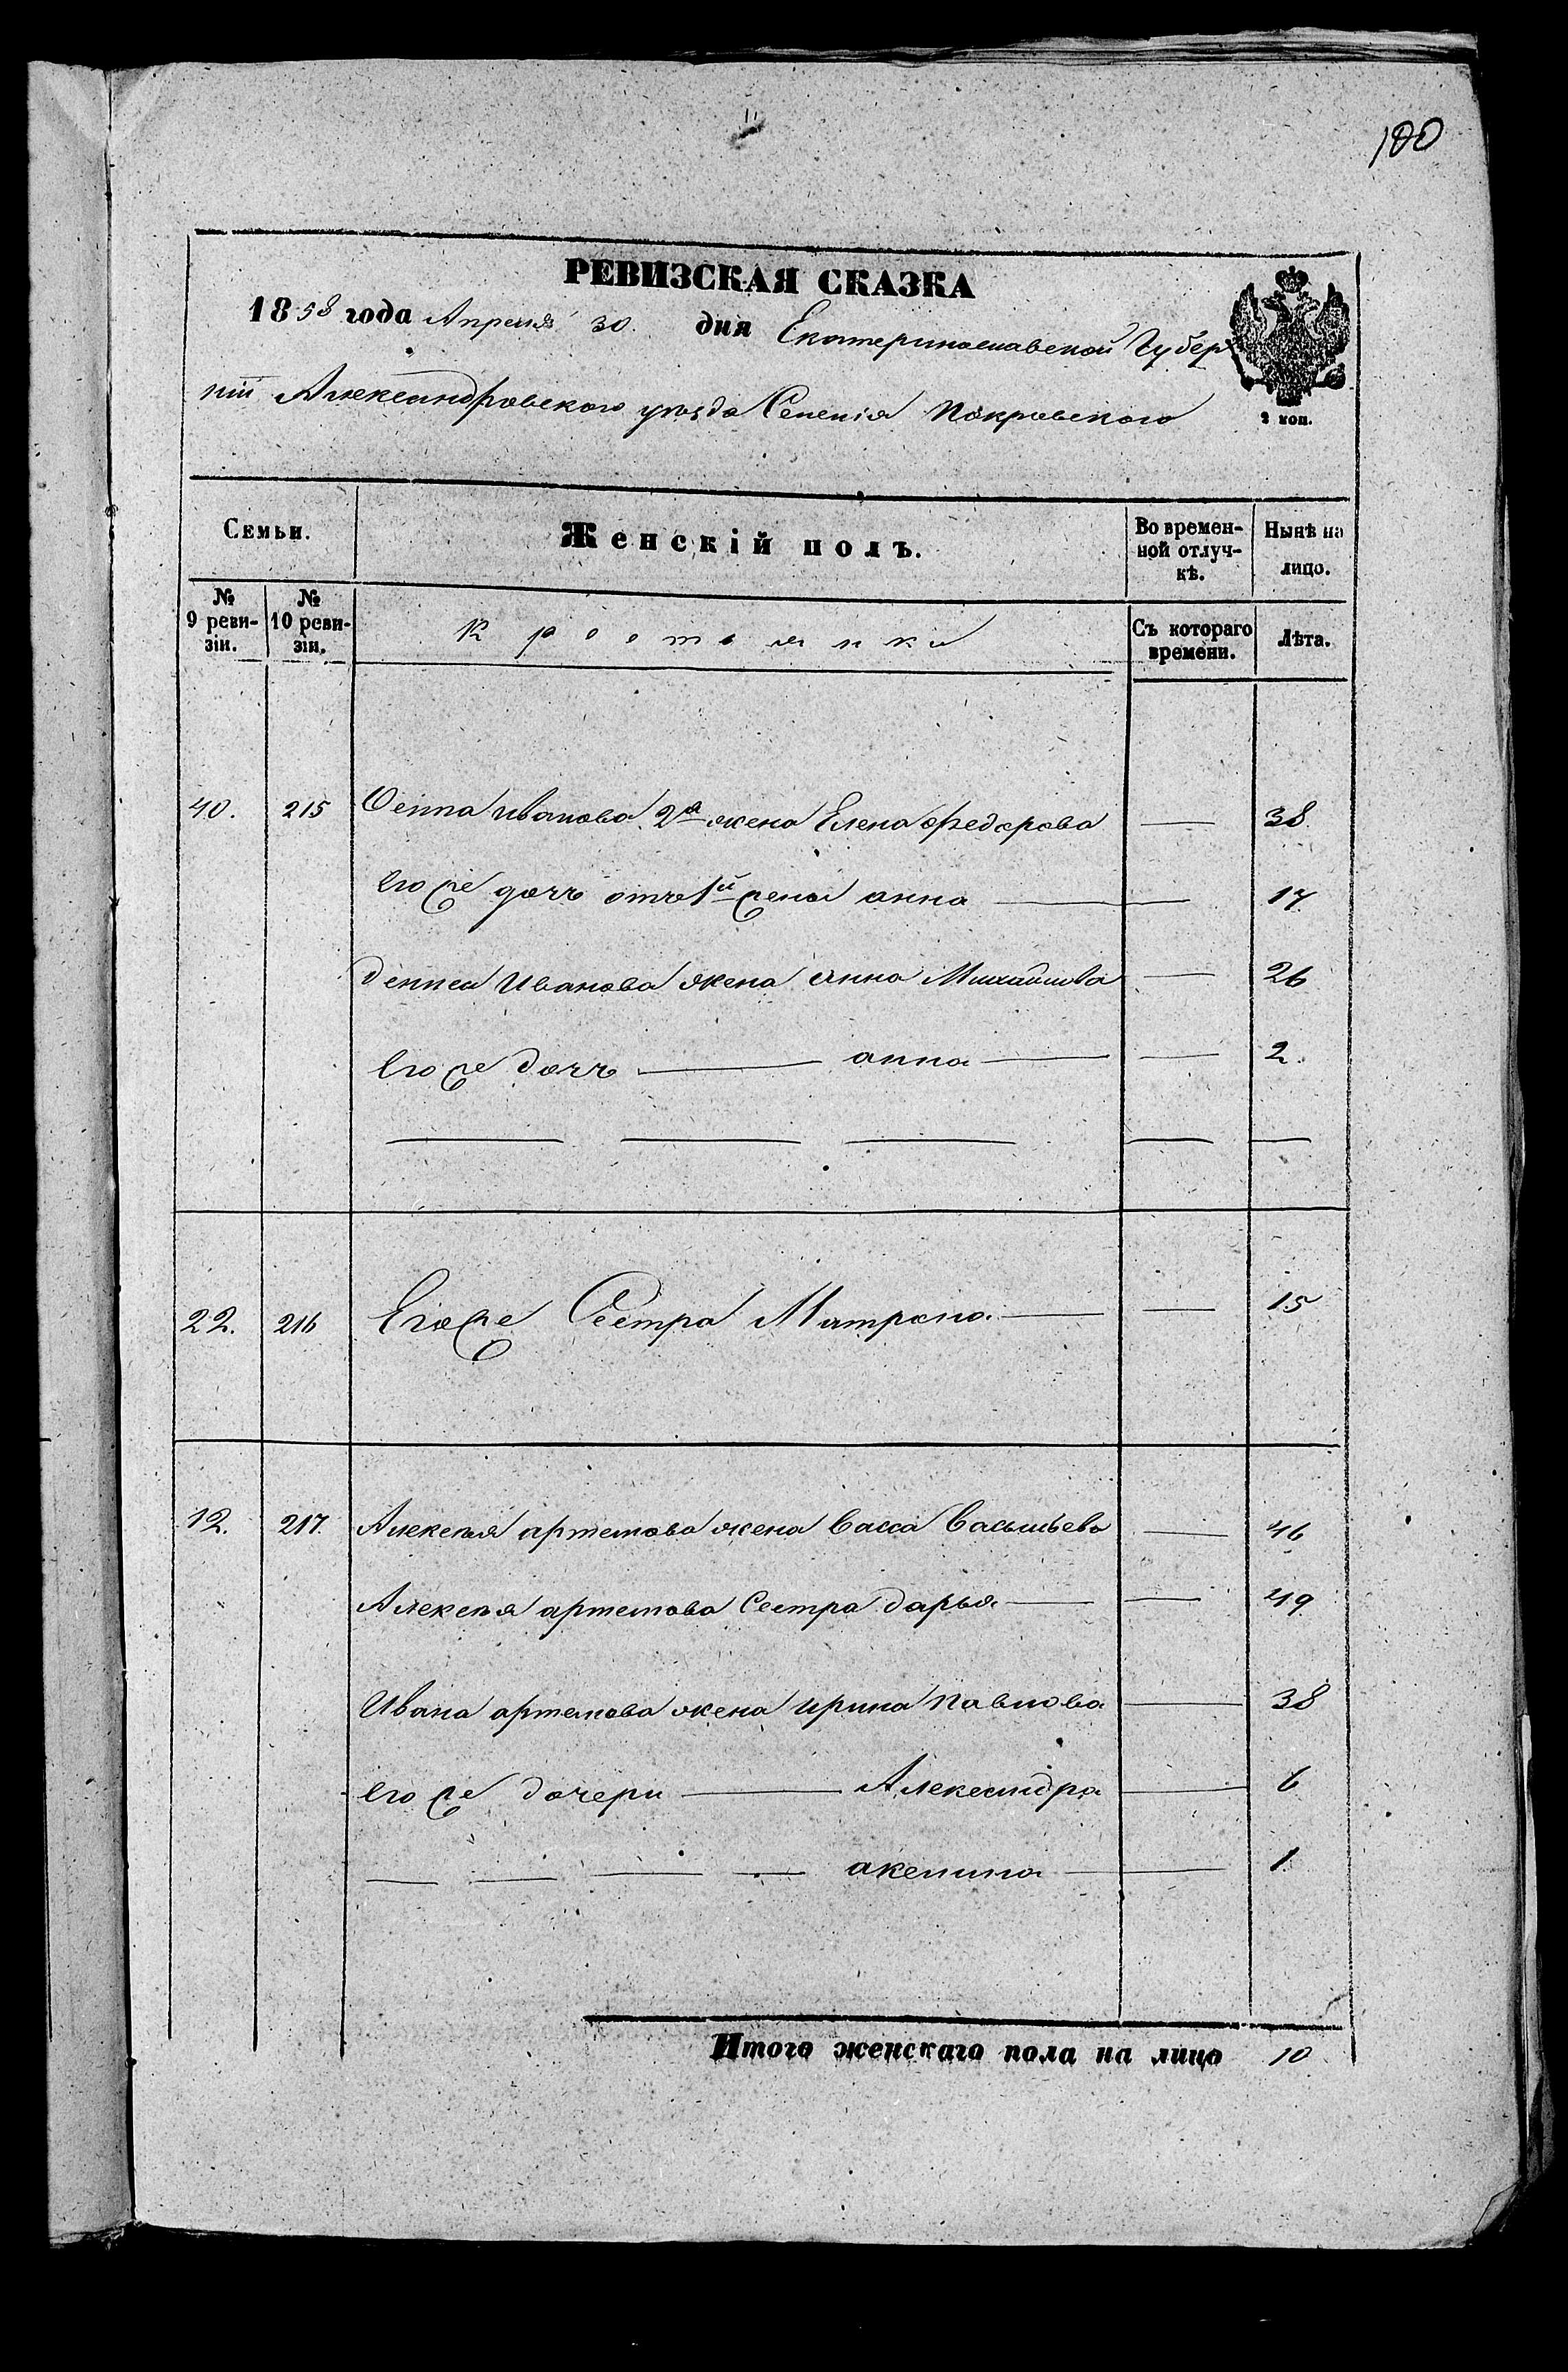 100
РЕВИЗСКАЯ СКАЗКА
1858 года Апреля 30 дня Екатеринославской Губер
ніи Александровского уѣзда Селенія Покровского
2 коп.
Семьи. Женскій полъ. Во времен- Нынѣ на
ной отлуч- лицо.
кѣ.
№ № Крестьянки Съ котораго Лѣта.
9 реви- 10 реви- времени.
зіи. зіи.
40. 215 Осипа Иванова 2я жена Елена Федорова — 38
Его же дочь отъ 1й жены анна — 17
Дениса Иванова жена анна Михайлова — 26
Его же дочь — анна — 2
22. 216 Его же Сестра Матрона — 15
12. 217 Алексѣя артемова жена Васса Васильева — 46
Алексѣя артемова Сестра дарья — 49
Ивана артемова жена ирина Павлова — 38
Его же дочери — Александра — 6
— акелина — 1
Итого женскаго пола на лицо 10